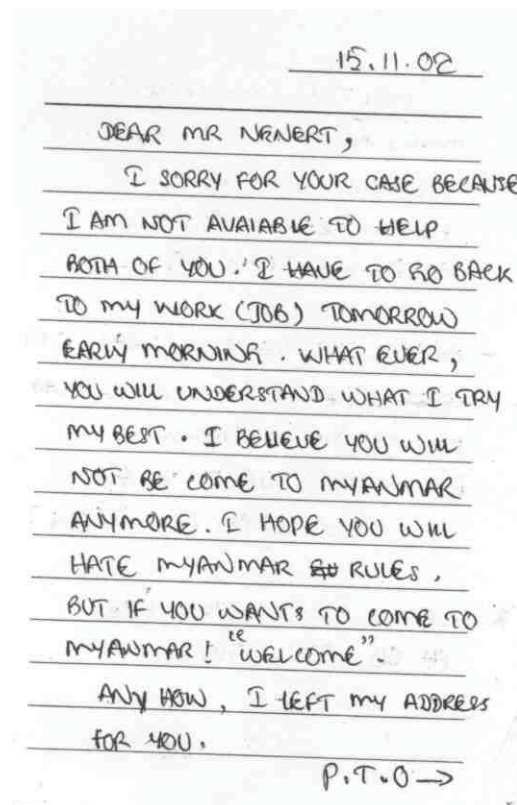 15.11.02
DEAR MR NENERT,
I SORRY FOR YOUR CASE BECAUSE
I AM NOT AVAIABLE TO HELP
BOTH OF YOU. I HAVE TO GO BACK
TO MY WORK (JOB) TOMORROW
EARLY MORNING. WHAT EVER,
YOU WILL UNDERSTAND WHAT I TRY
MY BEST. I BELIEVE YOU WILL
NOT BE COME TO MYANMAR
ANYMORE. I HOPE YOU WILL
HATE MYANMAR RULES.
BUT IF YOU WANTS TO COME TO
MYANMAR! "WELCOME".
ANY HOW, I LEFT MY ADDRESS
FOR YOU.
P.T.O→